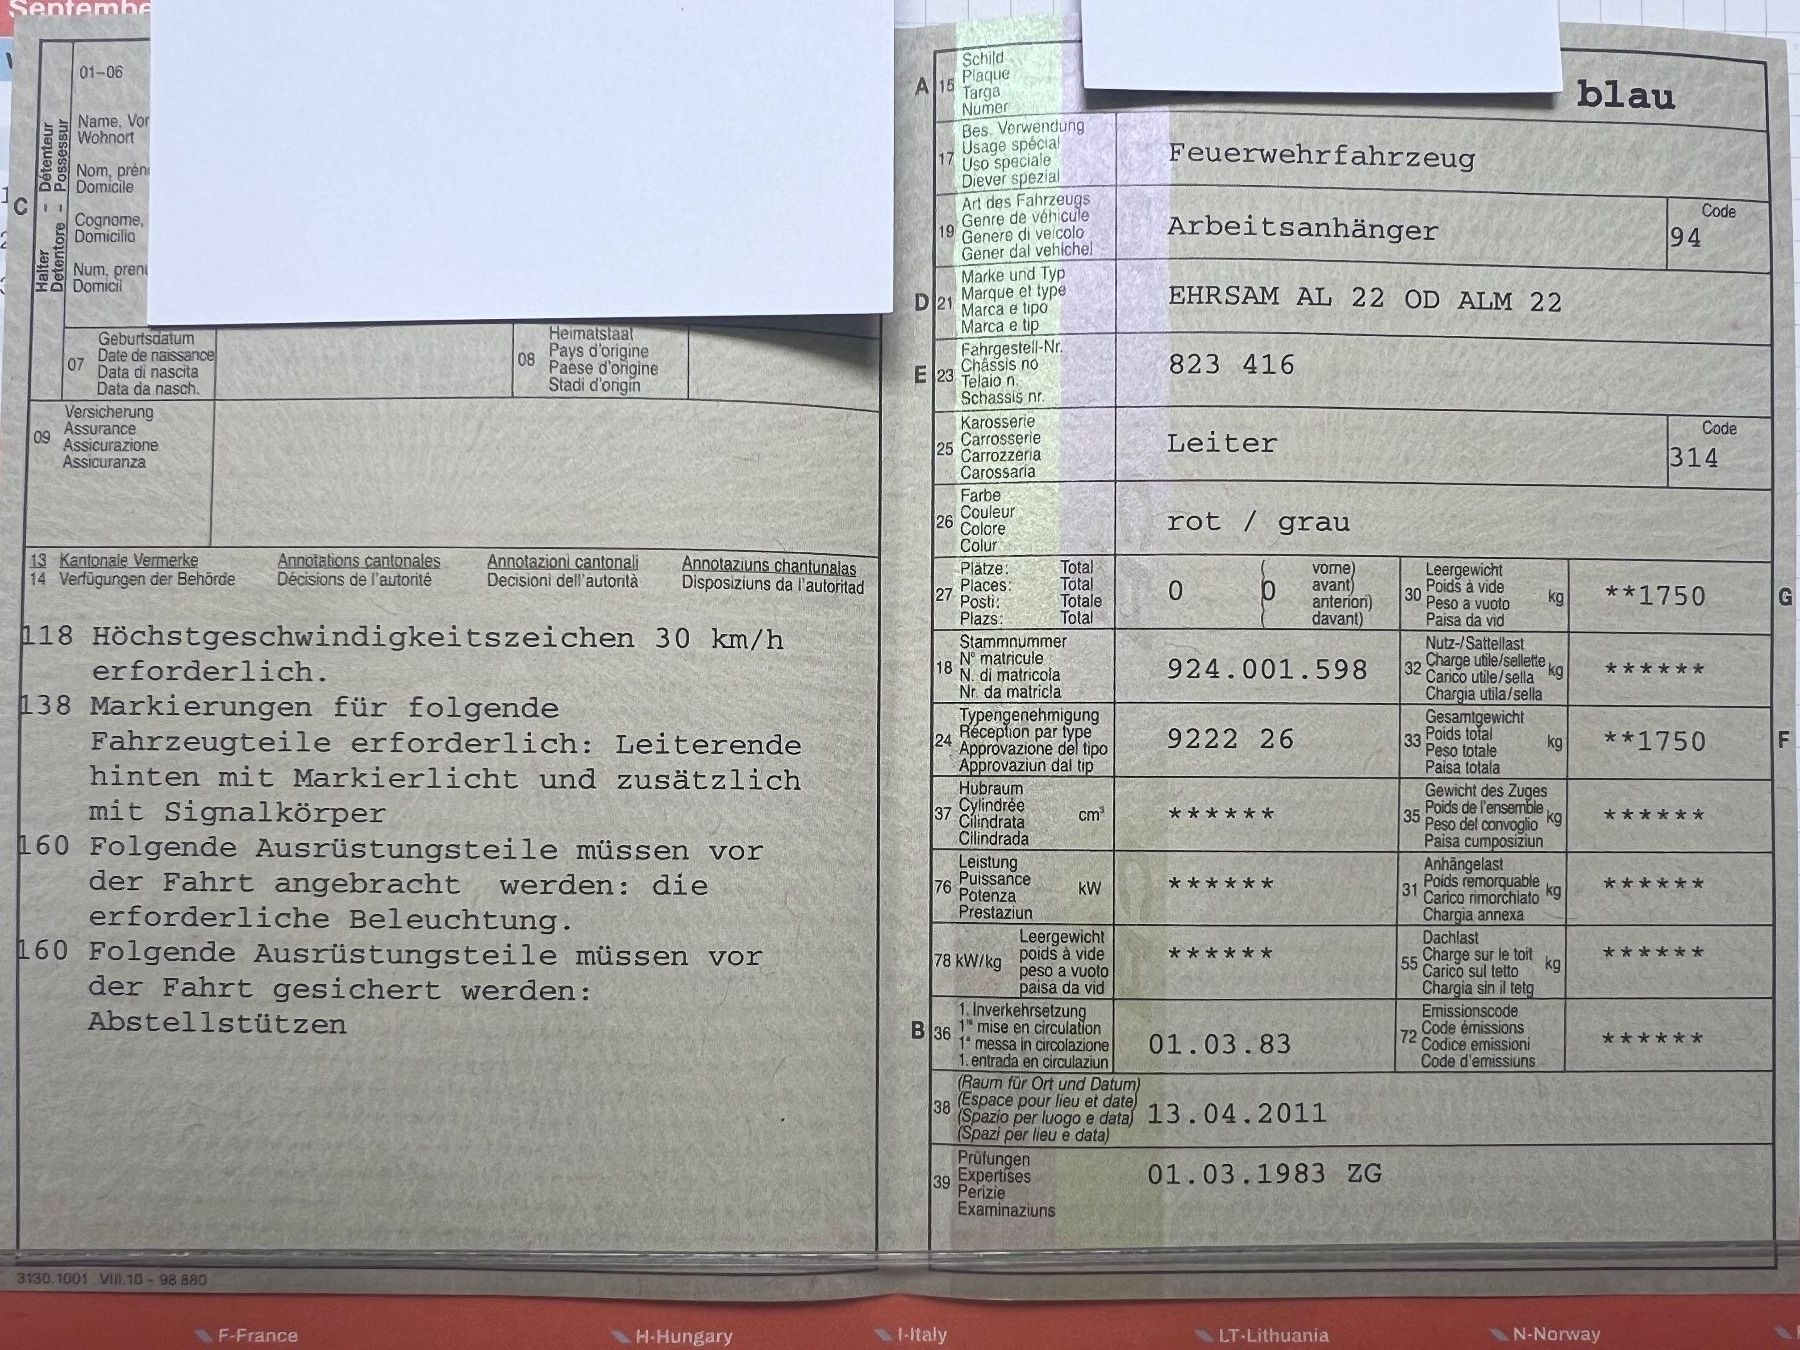 Septembe
01–06
Halter – Détenteur
Detentore – Possessur
C
Name, Vor
Wohnort
Nom, prén
Domicile
Cognome,
Domicilio
Num, prenu
Domicil
07
Geburtsdatum
Date de naissance
Data di nascita
Data da nasch.
08
Heimatstaat
Pays d'origine
Paese d'origine
Stadi d'origin
09
Versicherung
Assurance
Assicurazione
Assicuranza
13 Kantonale Vermerke Annotations cantonales Annotazioni cantonali Annotaziuns chantunalas
14 Verfügungen der Behörde Décisions de l'autorité Decisioni dell'autorità Disposiziuns da l'autoritad
118 Höchstgeschwindigkeitszeichen 30 km/h
erforderlich.
138 Markierungen für folgende
Fahrzeugteile erforderlich: Leiterende
hinten mit Markierlicht und zusätzlich
mit Signalkörper
160 Folgende Ausrüstungsteile müssen vor
der Fahrt angebracht werden: die
erforderliche Beleuchtung.
160 Folgende Ausrüstungsteile müssen vor
der Fahrt gesichert werden:
Abstellstützen
3130.1001 VIII.10 - 98 880
A 15
Schild
Plaque
Targa
Numer
blau
17
Bes. Verwendung
Usage spécial
Uso speciale
Diever spezial
Feuerwehrfahrzeug
19
Art des Fahrzeugs
Genre de véhicule
Genere di veicolo
Gener dal vehichel
Arbeitsanhänger
Code
94
D 21
Marke und Typ
Marque et type
Marca e tipo
Marca e tip
EHRSAM AL 22 OD ALM 22
E 23
Fahrgestell-Nr.
Châssis no
Telaio n.
Schassis nr.
823 416
25
Karosserie
Carrosserie
Carrozzeria
Carossaria
Leiter
Code
314
26
Farbe
Couleur
Colore
Colur
rot / grau
27
Plätze: Total
Places: Total
Posti: Totale
Plazs: Total
0 ( 0
vorne)
avant)
anteriori)
davant)
30
Leergewicht
Poids à vide
Peso a vuoto
Paisa da vid
kg
**1750
G
18
Stammnummer
N° matricule
N. di matricola
Nr. da matricla
924.001.598
32
Nutz-/Sattellast
Charge utile/sellette
Carico utile/sella
Chargia utila/sella
kg
******
24
Typengenehmigung
Réception par type
Approvazione del tipo
Approvaziun dal tip
9222 26
33
Gesamtgewicht
Poids total
Peso totale
Paisa totala
kg
**1750
F
37
Hubraum
Cylindrée
Cilindrata
Cilindrada
cm³
******
35
Gewicht des Zuges
Poids de l'ensemble
Peso del convoglio
Paisa cumposiziun
kg
******
76
Leistung
Puissance
Potenza
Prestaziun
kW
******
31
Anhängelast
Poids remorquable
Carico rimorchiato
Chargia annexa
kg
******
78 kW/kg
Leergewicht
poids à vide
peso a vuoto
paisa da vid
******
55
Dachlast
Charge sur le toit
Carico sul tetto
Chargia sin il tetg
kg
******
B 36
1. Inverkehrsetzung
1re mise en circulation
1a messa in circolazione
1. entrada en circulaziun
01.03.83
72
Emissionscode
Code émissions
Codice emissioni
Code d'emissiuns
******
38
(Raum für Ort und Datum)
(Espace pour lieu et date)
(Spazio per luogo e data)
(Spazi per lieu e data)
13.04.2011
39
Prüfungen
Expertises
Perizie
Examinaziuns
01.03.1983 ZG
F-France H-Hungary I-Italy LT-Lithuania N-Norway